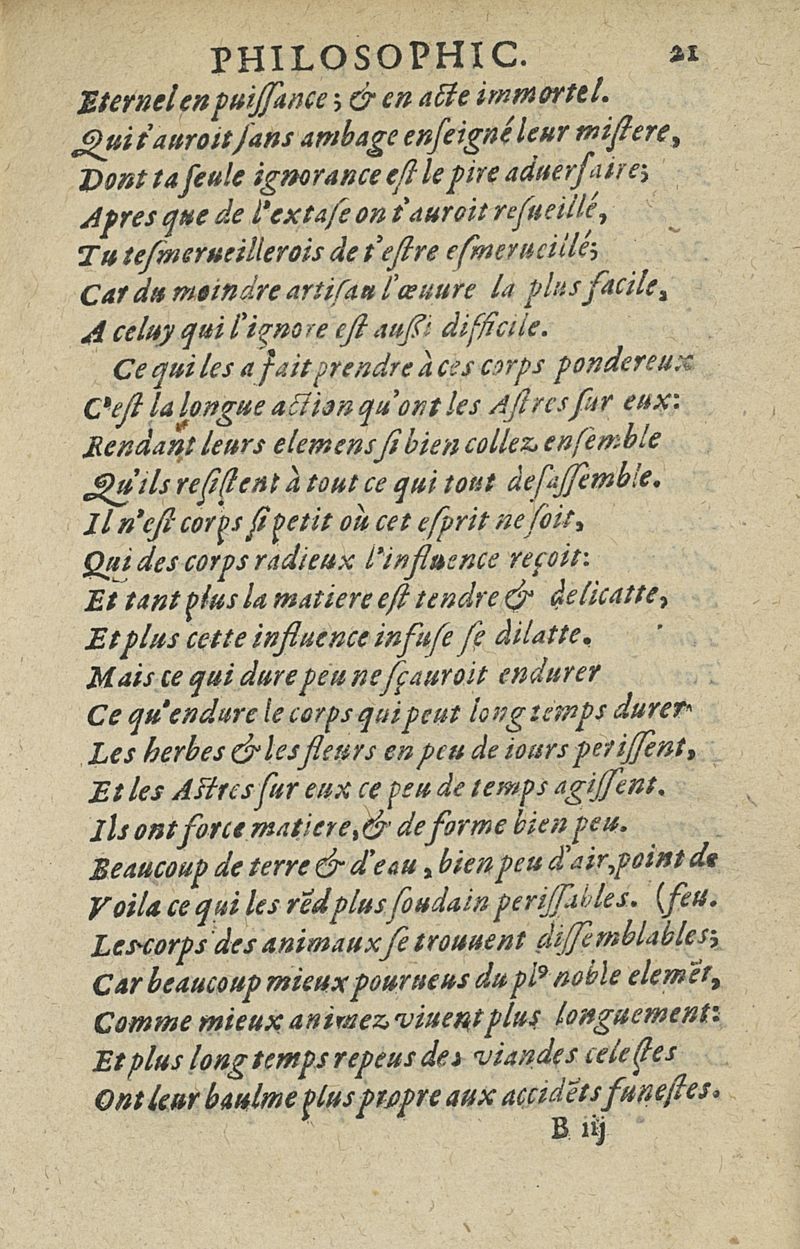 PHILOSOPHIC. 21
Eternel en puiſſance; & en acte immortel.
Qui t'auroit ſans ambage enſeigné leur miſtere,
Dont ta ſeule ignorance eſt le pire aduerſaire;
Apres que de l'extaſe on t'auroit reſueillé,
Tu teſmerueillerois de t'eſtre eſmerueillé;
Car du moindre artiſan l'œuure la plus facile,
A celuy qui l'ignore eſt auſſi difficile.
Ce qui les a fait prendre à ces corps pondereux
C'eſt la longue action qu'ont les Aſtres ſur eux:
Rendant leurs elemens ſi bien collez enſemble
Qu'ils reſiſtent à tout ce qui tout deſaſſemble.
Il n'eſt corps ſi petit où cet eſprit ne ſoit,
Qui des corps radieux l'influence reçoit:
Et tant plus la matiere eſt tendre & delicatte,
Et plus cette influence infuſe ſe dilatte.
Mais ce qui dure peu ne ſçauroit endurer
Ce qu'endure le corps qui peut long temps durer
Les herbes & les fleurs en peu de iours periſſent,
Et les Aſtres ſur eux ce peu de temps agiſſent.
Ils ont force matiere, & de forme bien peu.
Beaucoup de terre & d'eau, bien peu d'air, point de
Voila ce qui les rẽd plus ſoudain periſſables. (feu.
Les corps des animaux ſe trouuent diſſemblables;
Car beaucoup mieux pourueus du plꝰ noble elemẽt,
Comme mieux animez viuent plus longuement:
Et plus long temps repeus des viandes celeſtes
Ont leur baulme plus propre aux accidẽts funeſtes.
B iij